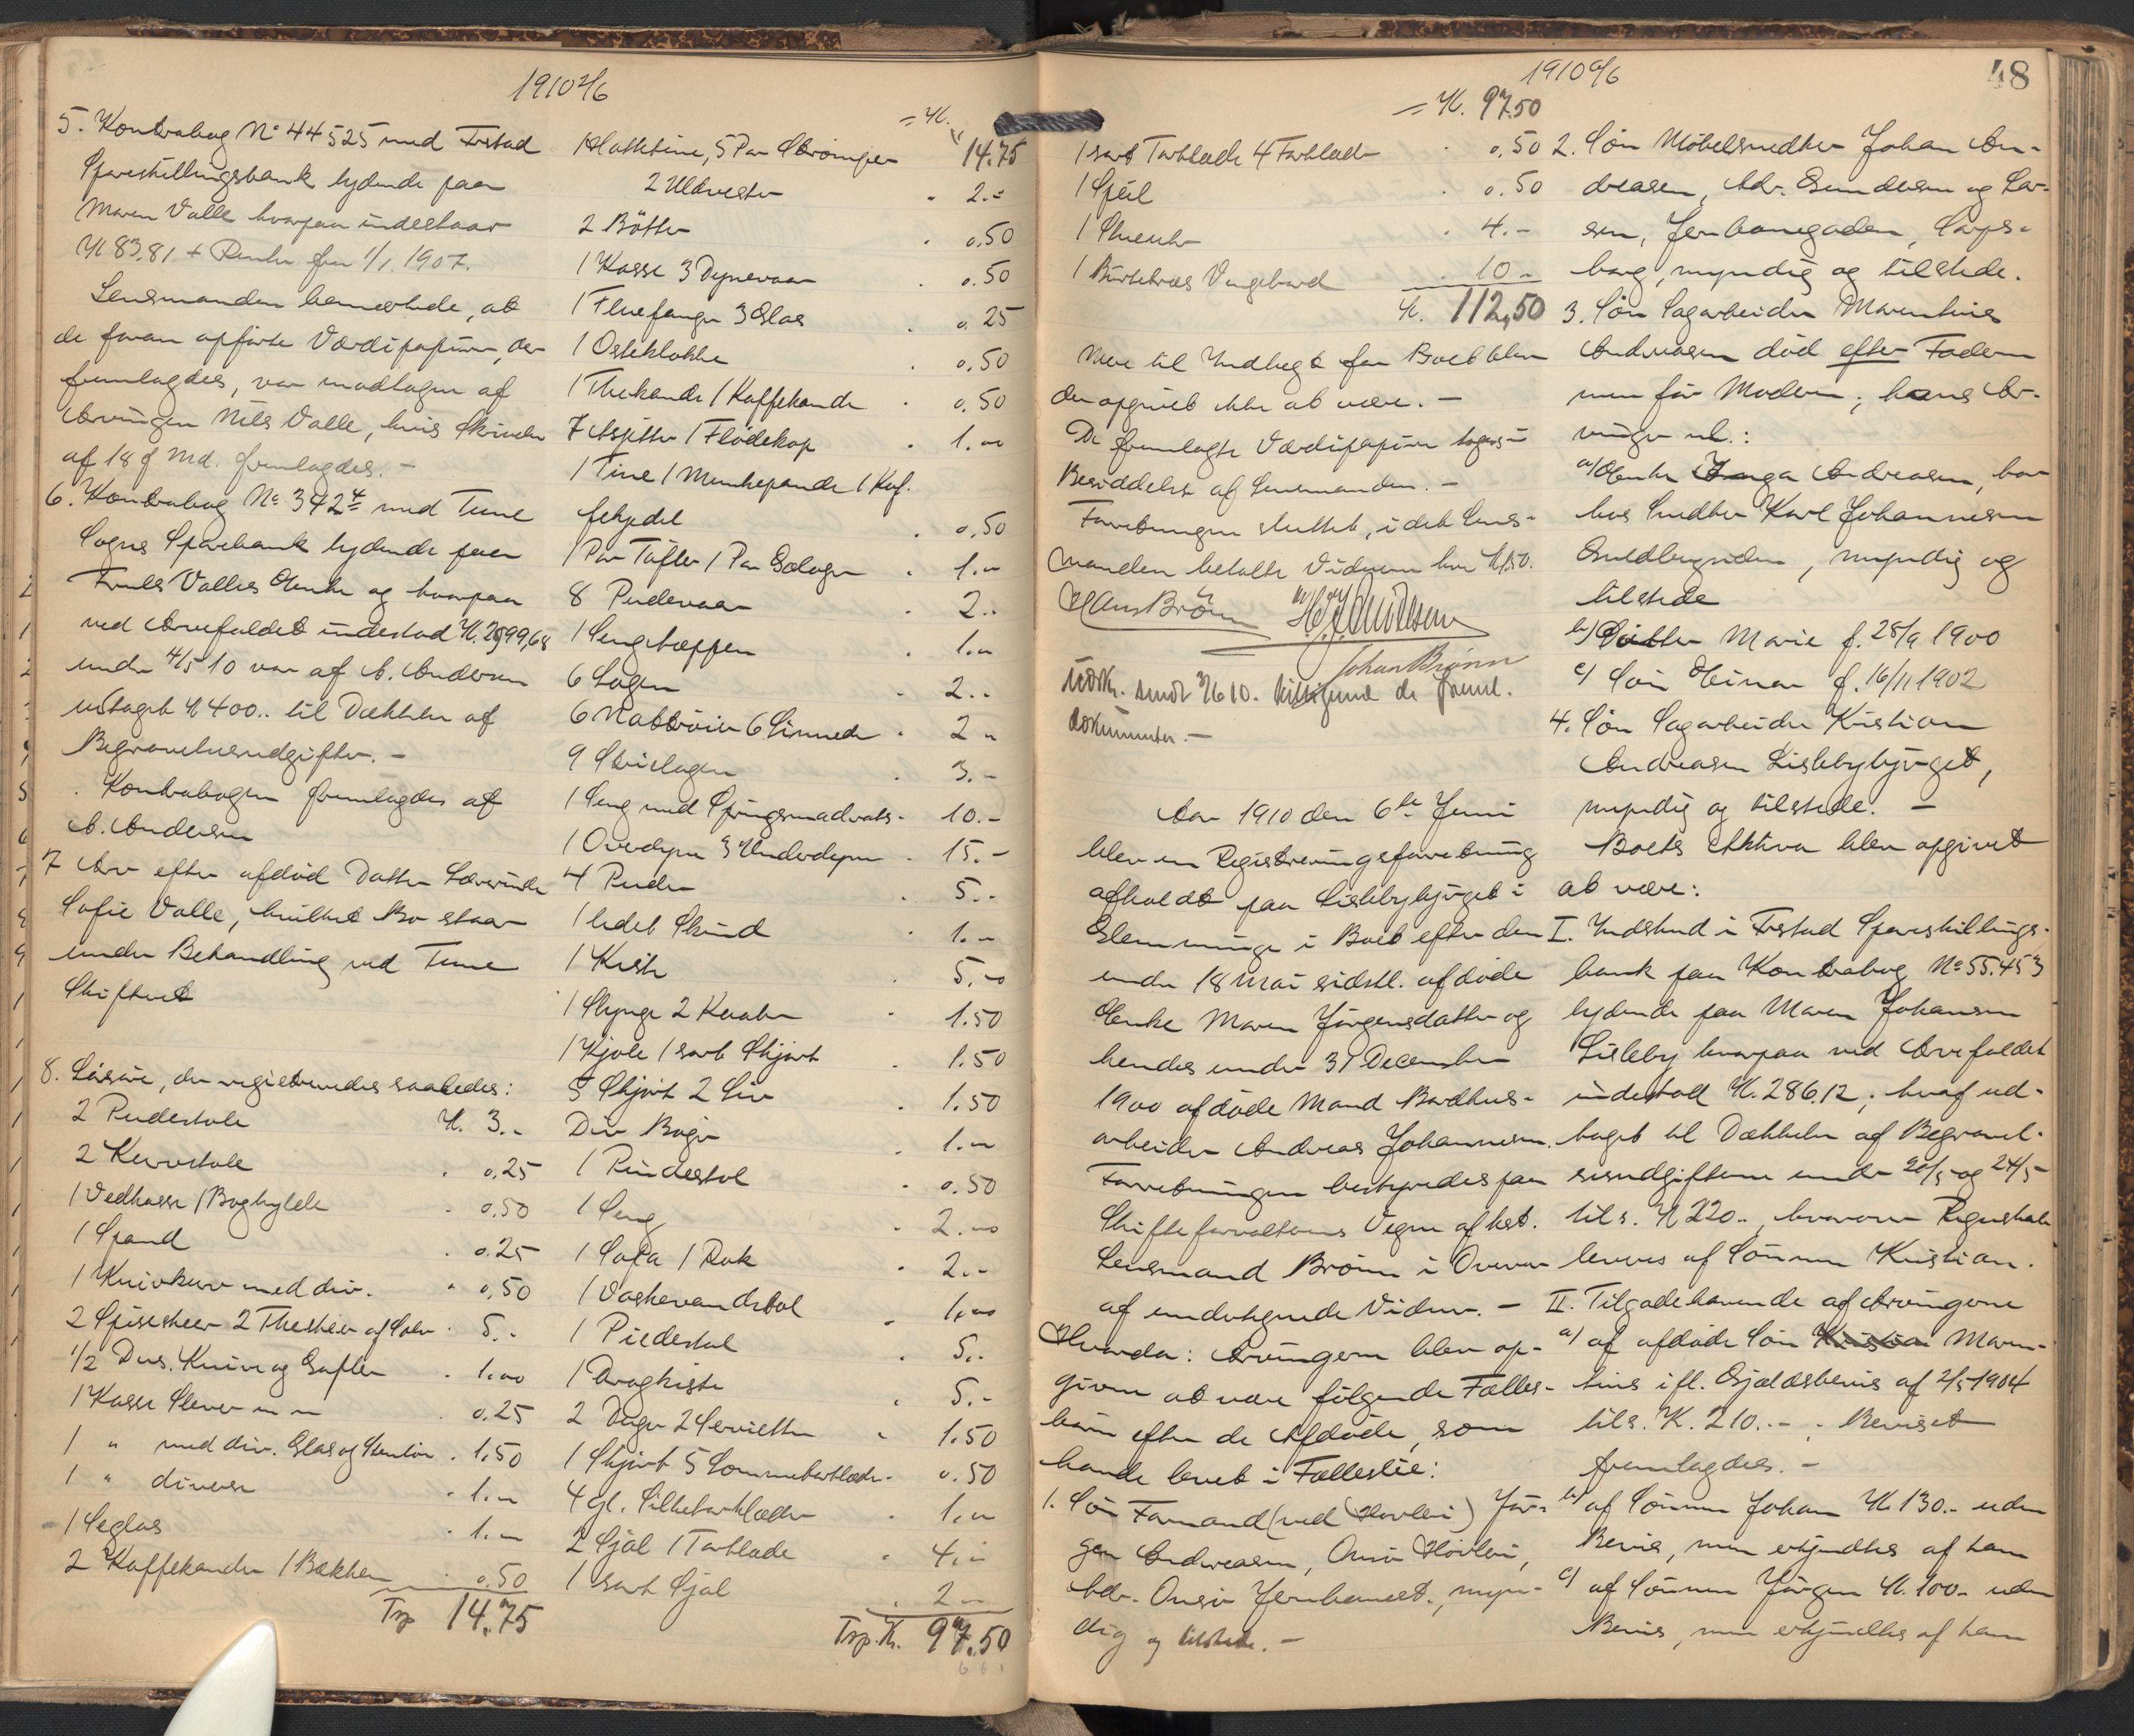 1910 2/6
5. Kontrabog No 44525 med Frstad
Spareskillingsbank lydende paa
Maren Valle hvorpaa indestaar
K 83,81 + Renter fra 1/1 1907.
Lensmanden bemærkede, at
de foran opførte Værdipapirer, der
fremlagdes, var modtagne af
Arvingen Nils Valle, hvis Skrivelse
af 18 f Md. fremlagdes. -
6. Kontrabog No 342 med Tune
Sogns Sparebank lydende paa
Truls Valles Enke og hvorpaa
ved Arvefaldet indestod K. 2599,68
under 4/5 10 var af A. Andersen
udtaget K 400.. til Dækkelse af
Begravelsesudgifter. -
Kontrabogen fremlagdes af
A. Andersen
7 Arv efter afdød Datter Lærerinde
Sofie Valle, hvilket Bo staar
under Behandling ved Tune
Skifteret
8. Løsøre, der registreredes saaledes:
2 Pindestole K. 3.-
2 Kurvstole 0.25
1 Vedkasse 1 Boghylde 0.50
1 Spand 0.25
1 Knivkurv med div. 0,50
2 Spiseskeer 2 Theskeer af Sølv 5.-
1/2 Dus. Knive og Gafler 1.00
1 Kasse Slever m m 0.25
1 " med div. Glas og Stentøi 1.50
1 " diverse 1.-
1 Seglas 1.-
2 Kaffekander 1 Bækken 0.50
Trp 14.75
= K.
14.75
1 Hattetine, 5 Par Strømper
2 Uldvester 2.-
2 Bøtter 0.50
1 Kasse 3 Dynevaar 0.50
1 Fluefanger 3 Glas 0.25
1 Osteklokke 0,50
1 Thekande 1 Kaffekande 0.50
7 Asjetter 1 Flødekop 1.00
1 Tine 1 Munkepande 1 Kaf-
fekjedel 0.50
1 Par Tøfler 1 Par Galoger 1.-
8 Pudevaar 2..
1 Sengetæppe 1.-
6 Lagen 2..
6 Nattrøier 6 Linneder 2 -
9 Strielagen 3.-
1 Seng med Springmadrats 10.-
1 Overdyne 3 Underdyner 15.-
4 Puder 5.-
1 ledet Skind 1.-
1 Kiste 5.00
1 Slynge 2 Kaaber 1.50
1 Kjole 1 sort Skjørt 1.50
5 Skjørt 2 Liv 1.50
Div Bøger 1.-
1 Pindestol 0.50
1 Seng 2.00
1 Sofa 1 Rok 2.-
1 Vaskevandstol 1,00
1 Piedestal 5.-
1 Dragkiste 5.-
2 Duger 2 Servietter 1.50
1 Skjørt 5 Lommetørklæder 0.50
4 gl. Silketørklæder 1.00
2 Sjal 1 Tørklæde 4.-
1 sort Sjal 2 -
Trp. K. 97.50
1910 6/6
48
= K. 97.50
1 sort Tørklæde 4 Forklæder 0.50
1 Speil 0.50
1 Stueuhr 4.-
1 Birketræs Vingebord 10 -
K. 112,50
Mere til Indtægt for Boet blev
der opgivet ikke at være. -
De fremlagte Værdipapirer toges i
Besiddelse af Lensmanden. -
Forretningen sluttet, idet Lens-
manden betalte Vidnerne hver K 1.50.
Hans Brønn H. J. Andersen
Johan Brønn
Udskr. sendt 3/6 10. tilligemed de freml.
dokumenter. -
Aar 1910 den 6te Juni
blev en Registreringsforretning
afholdt paa Lislebyhjøget i
Glemminge i Boet efter den
under 18 Mai sidstl. afdøde
Enke Maren Jørgensdatter og
hendes under 31 December
1900 afdøde Mand Bordhus-
arbeider Andreas Johannesen.
Forretningen bestyredes paa
Skifteforvalterens Vegne af kst.
Lensmand Brønn i Overvær
af undertegnede Vidner. -
Hvorda: Arvingerne blev op-
given at være følgende Fælles-
børn efter de Afdøde, som
havde levet i Fælleseie:
1. Søn Formand (ved Høvleri) Jør-
gen Andreasen, Onsø Høvleri,
Adr. Onsø Jernbanest., myn-
dig og tilstede. -
2. Søn Møbelsnedker Johan An-
dreasen, Adr. Gundersen og Lar-
sen, Jernbanegaden, Sarps-
borg, myndig og tilstede.
3. Søn Sagarbeider Marentius
Andreasen død efter Faderen
men før Moderen; hans Ar-
vinger ere:
a) Enke Inga Andreasen, bor
hos Snedker Karl Johannesen
Guldbergsiden, myndig og
tilstede
b) Datter Marie f. 28/9 1900
c) Søn Einar f. 16/11 1902
4. Søn Sagarbeider Kristian
Andreasen Lislebyhjøget,
myndig og tilstede. -
Boets Aktiva blev opgivet
at være:
I. Indskud i Frstad Spareskillings-
bank paa Kontrabog No 55.453
lydende paa Maren Johansen
Lisleby hvorpaa ved Arvefaldet
indestod K. 286.12, hvoraf ud-
taget til Dækkelse af Begravel-
sesudgifterne under 20/5 og 24/5
tils. K 220.., hvorom Regnskab
leveres af Sønnen Kristian.
II. Tilgodehavende af Arvingerne
a) af afdøde Søn Maren-
tius ifl. Gjældsbevis af 2/5 1904
tils. K. 210.-. Beviset
fremlagdes. -
b) af Sønnen Johan K 130.- uden
Bevis, men erkjendtes af ham
c) af Sønnen Jørgen K. 100.- uden
Bevis, men erkjendtes af ham